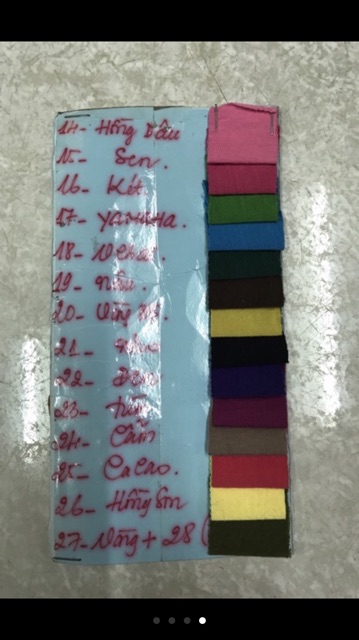 14- Hồng Dâu
15- Sen.
16- Két
17- YAMAHA.
18- Ve
19- Nâu.
20- Vàng
21-
22- Đen
23- Tím
24- Cẩm
25- CaCao.
26- Hồng Sơn
27- Vàng + 28 (